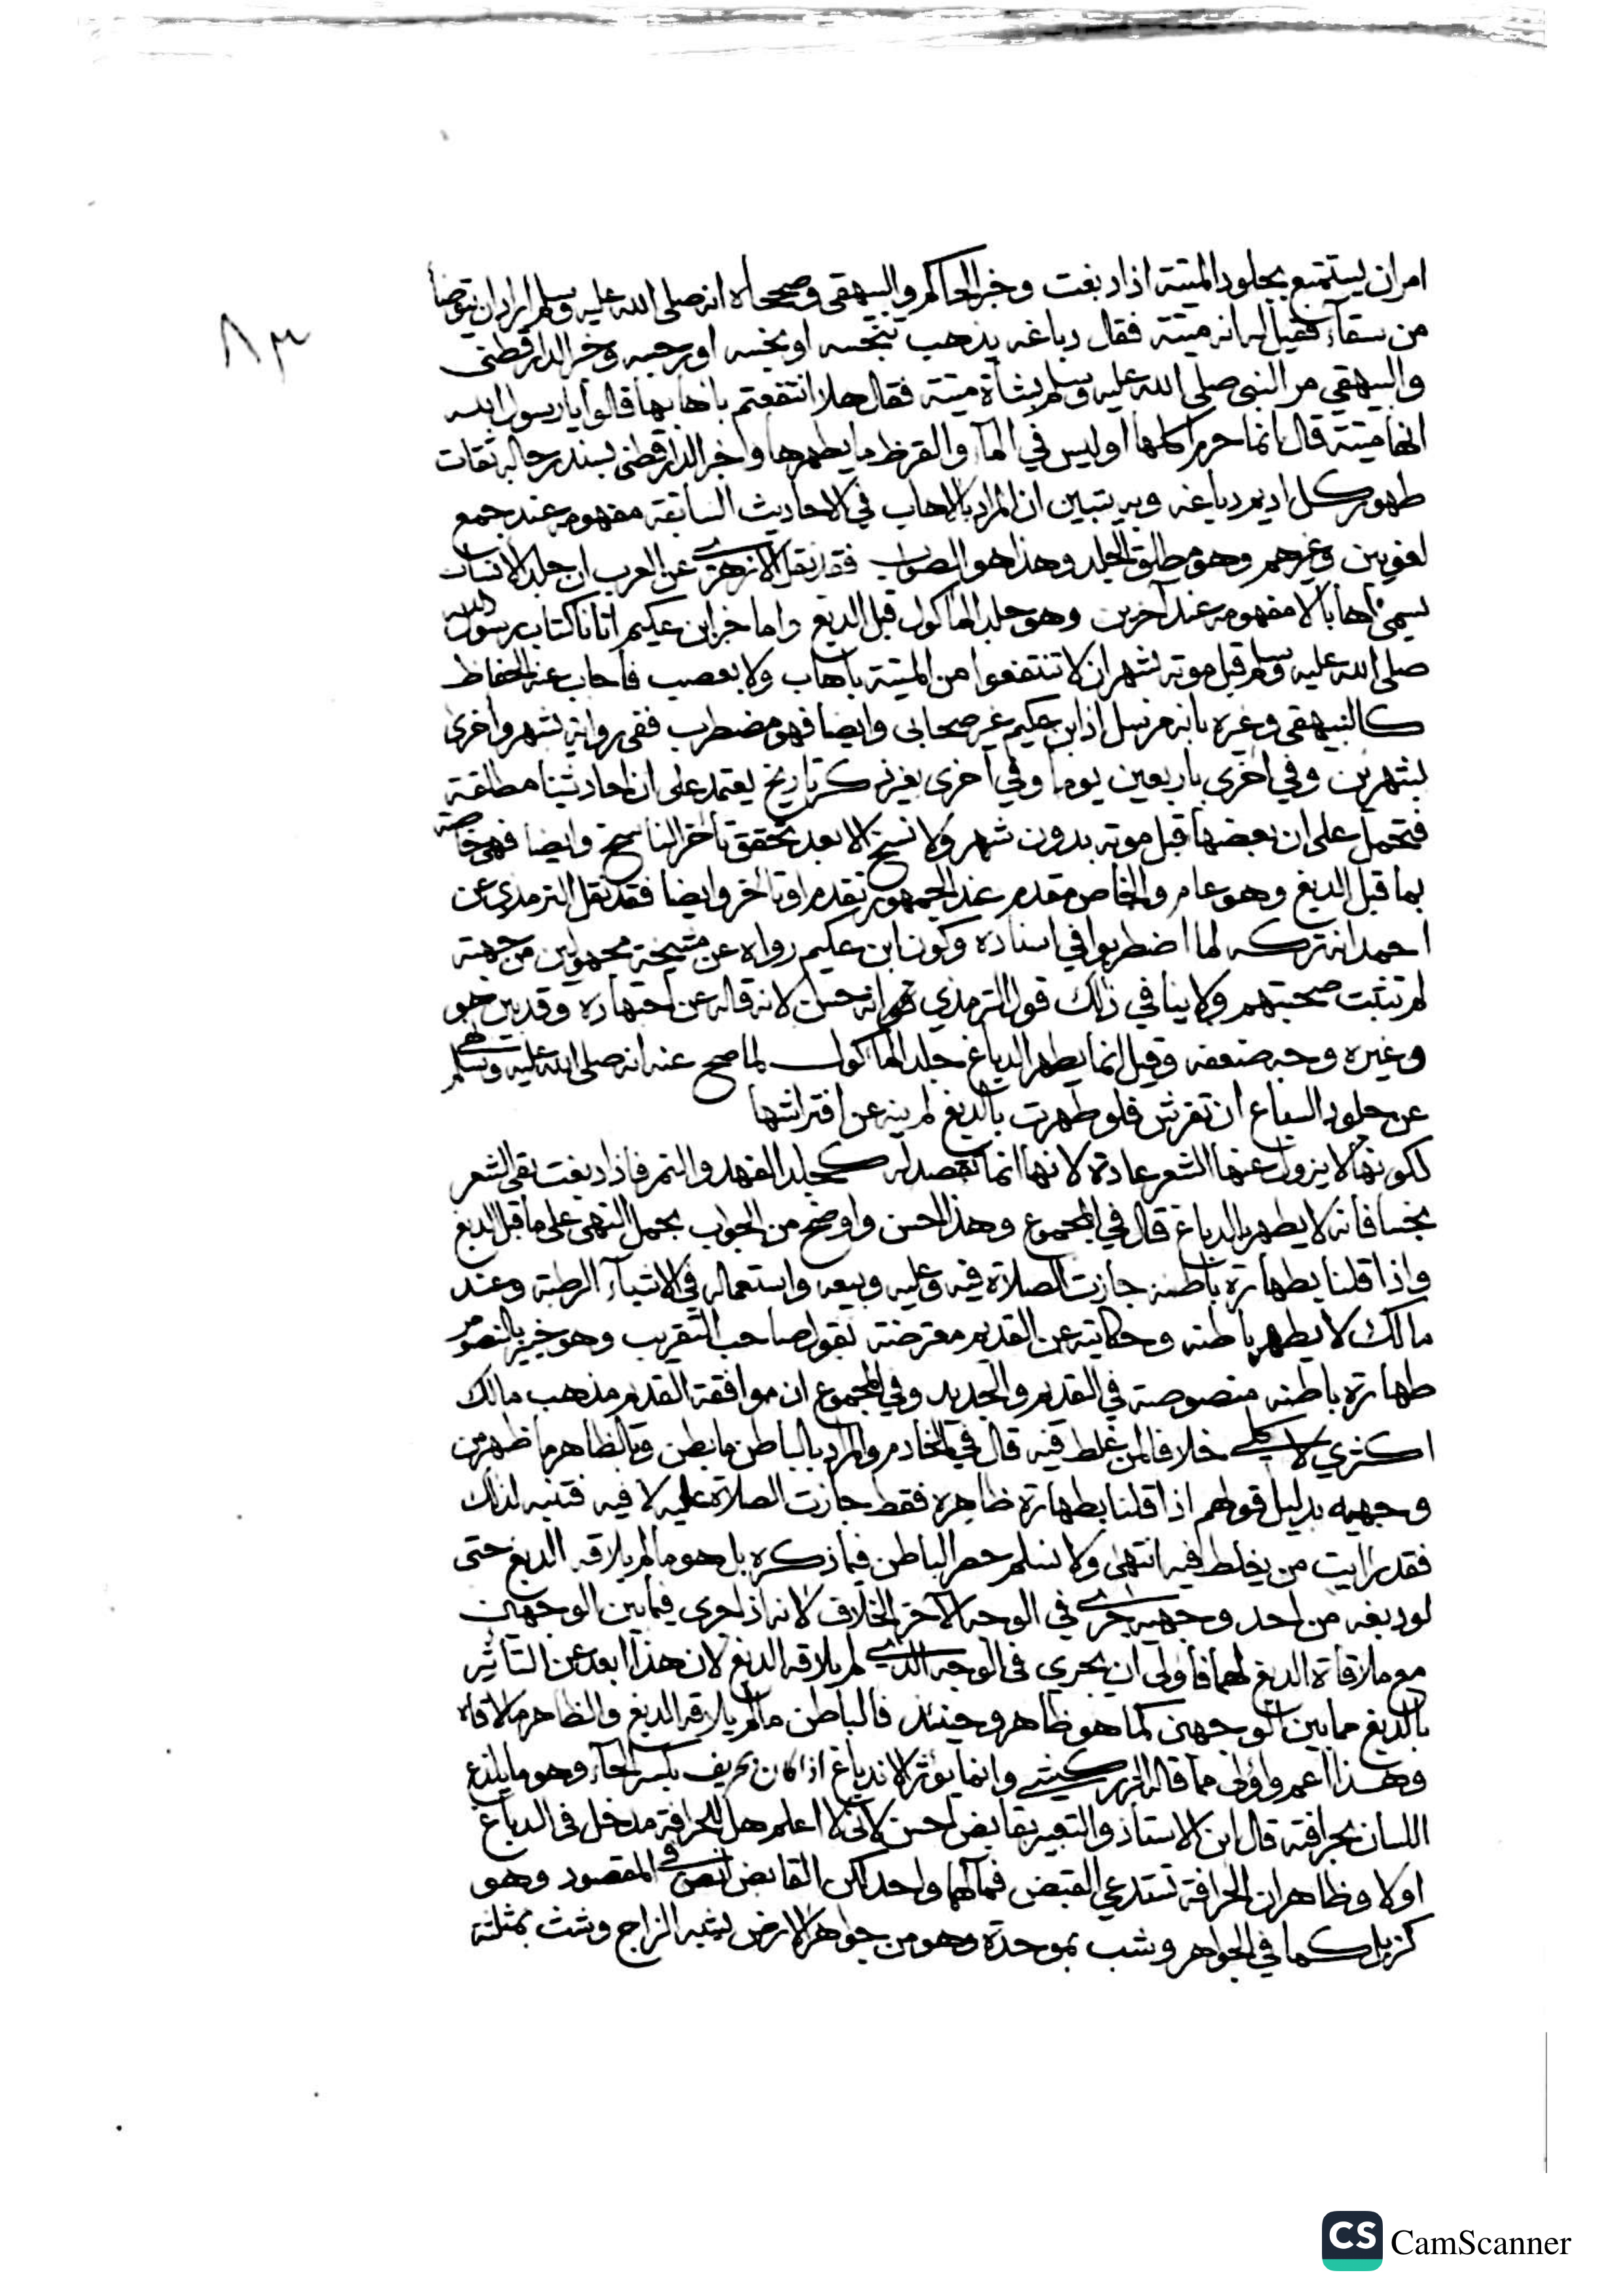 ٨٣
امر ان يستمتع بجلود الميتة اذا دبغت وخبر الحاكم والبيهقى وصححاه انه صلى الله عليه وسلم اراد ان يتوضأ
من سقآء فقيل له انه ميتة فقال دباغه يذهب بخبثه او نجسه او رجسه وخبر الدارقطنى
والبيهقي مر النبى صلى الله عليه وسلم بشاة ميتة فقال هلا انتفعتم باهابها قالوا يا رسول الله
انها ميتة قال انما حرم اكلها اوليس في المآ والقرظ ما يطهرها واخر الدارقطنى بسند رجاله ثقات
طهور كل اديم دباغه وبه يتبين ان المراد بالاهاب في الاحاديث السابقة مفهومه عند جمع
لغويين وغيرهم وهو مطلق الجلد وهذا هو الصواب فقد نقل الازهري عن العرب ان جلد الانسان
يسمى اهابا لا مفهومه عند آخرين وهو جلد الماكول قبل الدبغ واما خبر ابن عكيم اتانا كتاب رسول الله
صلى الله عليه وسلم قبل موته بشهر ان لا تنتفعوا من الميتة باهاب ولا بعصب فاجاب عنه الحفاظ
كالبيهقى وغيره بانه مرسل اذ ابن عكيم غير صحابى وايضا فهو مضطرب ففى رواية شهر واخرى
بشهرين وفي اخرى باربعين يوما وفي اخرى بغير ذكر تاريخ يعتمد على ان احاديثنا مطلقة
فتحمل على ان بعضها قبل موته بدون شهر ولا نسخ الا بعد تحقق تاخر الناسخ وايضا فهى خاصة
بما قبل الدبغ وهو عام والخاص مقدم عند الجمهور تقدم او تاخر وايضا فقد نقل الترمذي عن
احمد انه تركه لما اضطربوا في اسناده وكون ابن عكيم رواه عن مشيخة مجهولين من جهينة
لم تثبت صحبتهم ولا ينافي ذلك قول الترمذي انه حسن لانه قاله عن اجتهاده وقد بين هو
وغيره وجه ضعفه وقيل انما يطهر الدباغ جلد الماكول لما صح عنه انه صلى الله عليه وسلم نهى
عن جلود السباع ان تفرش فلو طهرت بالدبغ لم ينه عن افتراشها
لكونها لا يزول عنها الشعر عادة لانها انما تقصد له كجلد الفهد والنمر فاذا دبغت بقى الشعر
نجسا فانه لا يطهر بالدباغ قال في المجموع وهذا احسن واوضح من الجواب بحمل النهى على ما قبل الدبغ
واذا قلنا بطهارة باطنه جازت الصلاة فيه وعليه وبيعه واستعماله في الاشيآء الرطبة وعند
مالك لا يطهر باطنه وحكايته عن القديم معترضة بقول صاحب التقريب وهو خبير بالنصوص
طهارة باطنه منصوصة في القديم والجديد وفي المجموع ان موافقة القديم مذهب مالك
اكثري لا كلي خلافا لمن غلط فيه قال في الخادم والمراد بالباطن ما بطن وبالظاهر ما ظهر من
وجهيه بدليل قولهم اذا قلنا بطهارة ظاهره فقط جازت الصلاة عليه لا فيه فتنبه لذلك
فقد رايت من يغلط فيه انتهى ولا نسلم حصر الباطن فيما ذكره بل هو ما لم يلاقه الدبغ حتى
لو دبغه من احد وجهيه جرى في الوجه الآخر الخلاف لانه اذا جرى فيما بين الوجهين
مع ملاقاة الدبغ لهما فاولى ان يجرى في الوجه الذي لم يلاقه الدبغ لان هذا ابعد عن التاثير
بالدبغ مما بين الوجهين كما هو ظاهر وحينئذ فالباطن ما لم يلاقه الدبغ والظاهر ما لاقاه
وهذا اعم واولى مما قاله الزركشي وانما يؤثر الاندباغ اذا كان بحريف بكسر الحآء وهو ما يلذع
اللسان بحرافته قال ابن الاستاذ والتعبير بقابض احسن لانى لا اعلم هل للحرافة مدخل فى الدباغ
اولا وظاهر ان الحرافة تستدعي القبض فمآلهما واحد لكن القابض انص في المقصود وهو
كزبل كما في الجواهر وشب بموحدة وهو من جواهر الارض يشبه الزاج وشث بمثلثة
CS CamScanner